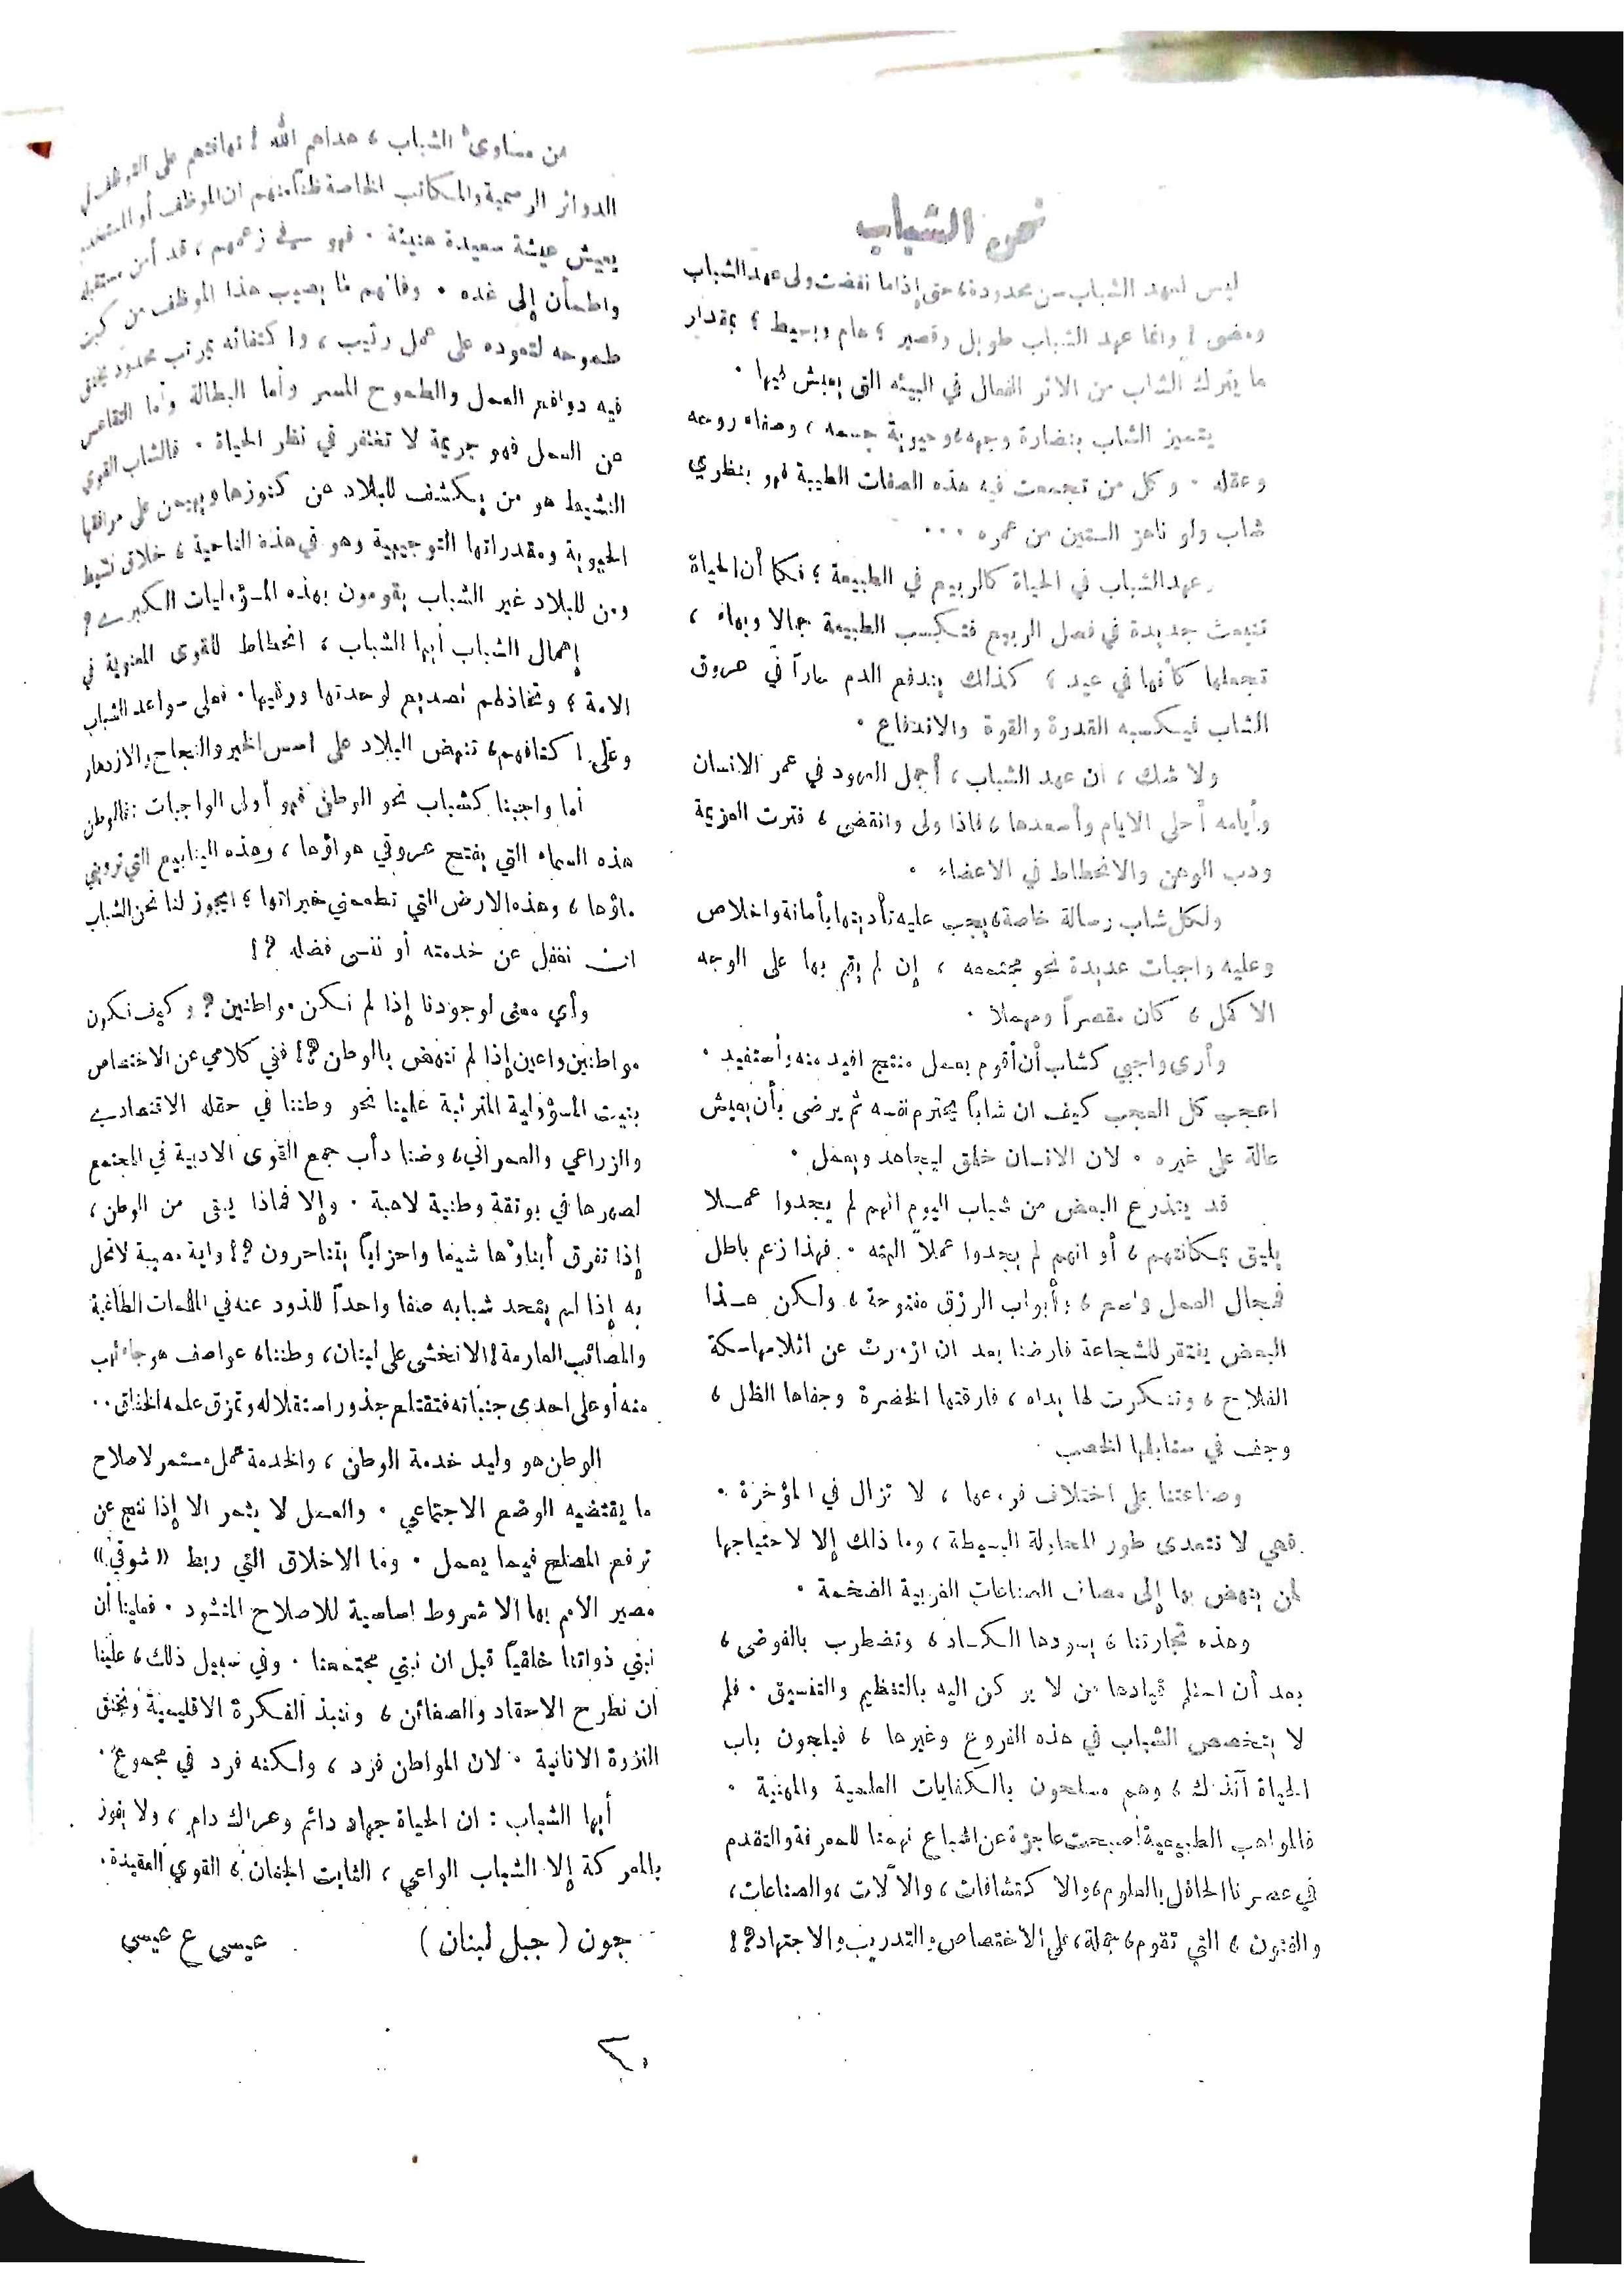 نحن الشباب
ليس لعهد الشباب سن محدودة، حتى إذا ما نقضت ولى عهد الشباب
ومضى! وانما عهد الشباب طويل وقصير؛ هام وبسيط؛ بمقدار
ما يترك الشاب من الاثر الفعال في البيئه التي يعيش فيها.
يتميز الشاب بنضارة وجهه، وحيوية جسمه، وصفاء روحه
وعقله. وكل من تجمعت فيه هذه الصفات الطيبة فهو بنظري
شاب ولو ناهز الستين من عمره ...
وعهد الشباب في الحياة كالربيع في الطبيعة؛ فكما أن الحياة
تنبعث جديدة في فصل الربيع فتكسب الطبيعة جمالا وبهاء،
تجعلها كأنها في عيد؛ كذلك يندفع الدم حاراً في عروق
الشاب فيكسبه القدرة والقوة والاندفاع.
ولا شك، ان عهد الشباب، أجمل العهود في عمر الانسان
وأيامه أحلى الايام وأسعدها، فاذا ولى وانقضى، فترت العزيمة
ودب الوهن والانحطاط في الاعضاء.
ولكل شاب رسالة خاصة، يجب عليه تأديتها بأمانة واخلاص
وعليه واجبات عديدة نحو مجتمعه، إن لم يقم بها على الوجه
الاكمل، كان مقصراً ومهملا.
وأرى واجبي كشاب أن أقوم بعمل منتج افيد منه وأستفيد.
اعجب كل العجب كيف ان شاباً يحترم نفسه ثم يرضى بأن يعيش
عالة على غيره. لان الانسان خلق ليجاهد ويعمل.
قد يتذرع البعض من شباب اليوم انهم لم يجدوا عملا
يليق بمكانتهم، أو انهم لم يجدوا عملاً البته. فهذا زعم باطل
فمجال العمل واسع، وأبواب الرزق مفتوحة، ولكن هذا
البعض يفتقر للشجاعة فارضنا بعد ان ازورت عن اثلامها سكة
الفلاح، وتنكرت لها يداه، فارقتها الخضرة وجفاها الظل،
وجف في سنابلها الخصب
وصناعتنا على اختلاف فروعها، لا تزال في المؤخرة.
فهي لا تتعدى طور المحاولة البسيطة، وما ذلك إلا لاحتياجها
لمن ينهض بها إلى مصاف الصناعات الغربية الضخمة.
وهذه تجارتنا، يسودها الكساد، وتضطرب بالفوضى،
بعد أن استلم قيادها من لا يركن اليه بالتنظيم والتنسيق. فلم
لا يتخصص الشباب في هذه الفروع وغيرها، فيلجون باب
الحياة آنذاك، وهم مسلحون بالكفايات العلمية والمهنية.
فالمواهب الطبيعية اصبحت عاجزة عن اشباع نهمنا للمعرفة والتقدم
في عصرنا الحافل بالعلوم، والاكتشافات، والآلات، والصناعات،
والفنون، التي تقوم، جملة، على الاختصاص والتدريب والاجتهاد؟!
من مساوىء الشباب، هداهم الله! تهافتهم على التوظف في
الدوائر الرسمية والمكاتب الخاصة ظناً منهم ان الموظف أو المستخدم
يعيش عيشة سعيدة هنيئة. فهو في زعمهم، قد أمن مستقبله
واطمأن إلى غده. وفاتهم ما يصيب هذا الموظف من كبت
طموحه لتعوده على عمل رتيب، واكتفائه بمرتب محدود يخنق
فيه دوافع العمل والطموح المستمر وأما البطالة وأما التقاعس
عن العمل فهو جريمة لا تغتفر في نظر الحياة. فالشاب القوي
النشيط هو من يكشف للبلاد عن كنوزها ويهيمن على مرافقها
الحيوية ومقدراتها التوجيهية وهو في هذه الناحية، خلاق نشيط
ومن للبلاد غير الشباب يقومون بهذه المسؤوليات الكبرى؟
إهمال الشباب أيها الشباب، انحطاط للقوى المعنوية في
الامة، وتخاذلهم تصديع لوحدتها ورقيها. فعلى سواعد الشباب
وعلى اكتافهم، تنهض البلاد على اسس الخير والنجاح والازدهار
أما واجبنا كشباب نحو الوطن فهو أولى الواجبات: فالوطن
هذه السماء التي يفتح عروقي هواؤها، وهذه الينابيع التي ترويني
ماؤها، وهذه الارض التي تطعمني خيراتها؛ ايجوز لنا نحن الشباب
ان نغفل عن خدمته أو ننسى فضله؟!
وأي معنى لوجودنا إذا لم نكن مواطنين؟ وكيف نكون
مواطنين واعين إذا لم ننهض بالوطن؟! ففي كلامي عن الاختصاص
بنيت المسؤولية المترتبة علينا نحو وطننا في حقله الاقتصادي
والزراعي والعمراني، وضنا دأب جمع القوى الادبية في المجتمع
لصهرها في بوتقة وطنية لاهبة. وإلا فماذا يبقى من الوطن،
إذا تفرق أبناؤها شيعا واحزاباً يتناحرون؟! واية مصيبة لا تحل
به إذا لم يتحد شبابه صفا واحداً للذود عنه في الملمات الطاغية
والمصائب العارمة! الا نخشى على لبنان، وطننا، عواصف هوجاء تهب
منه أو على احدى جنباته فتقتلع جذور استقلاله وتمزق علمه الخفاق..
الوطن هو وليد خدمة الوطن، والخدمة عمل مستمر لاصلاح
ما يقتضيه الوضع الاجتماعي. والعمل لا يثمر الا إذا نتج عن
ترفع المصلح فيما يعمل. وما الاخلاق التي ربط «شوقي»
مصير الامم بها الا شروط اساسية للاصلاح المنشود. فعلينا أن
نبني ذواتنا خلقياً قبل ان نبني مجتمعنا. وفي سبيل ذلك، علينا
ان نطرح الاحقاد والضغائن، وننبذ الفكرة الاقليمية ونخنق
النزرة الانانية. لان المواطن فرد، ولكنه فرد في مجموع.
أيها الشباب: ان الحياة جهاد دائم وعراك دام، ولا يفوز
بالمعركة إلا الشباب الواعي، الثابت الجنان، القوي العقيدة.
جون (جبل لبنان) عيسى ع عيسى
٢٠